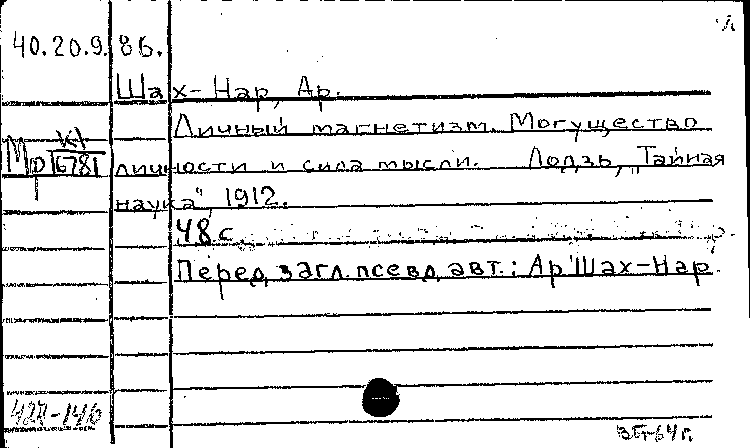 40.20.9. 86.
Шах-Нар, Ар.
Личный магнетизм. Могущество
личности и сила мысли. Лодзь, „Тайная
наука", 1912.
48 с.
Перед загл. псевд. авт.: Ар Шах-Нар.
428-146